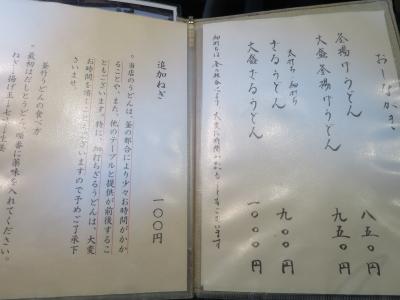 おしながき
釜揚げうどん 八五〇円
大盛釜揚げうどん 九五〇円
太打ち 細打ち
ざるうどん 九〇〇円
大盛ざるうどん 一〇〇〇円
追加ねぎ 一〇〇円
。当店のうどんは、釜の都合により少々お時間がかか
ることや、また、他のテーブルと提供が前後するこ
ともございます。特に、細打ちざるうどんは、大変
お時間を
ございますので予めご了承下
さいませ。
釜竹うどんの食べ方
。最初はだしとうどん、順番に薬味を入れてください。